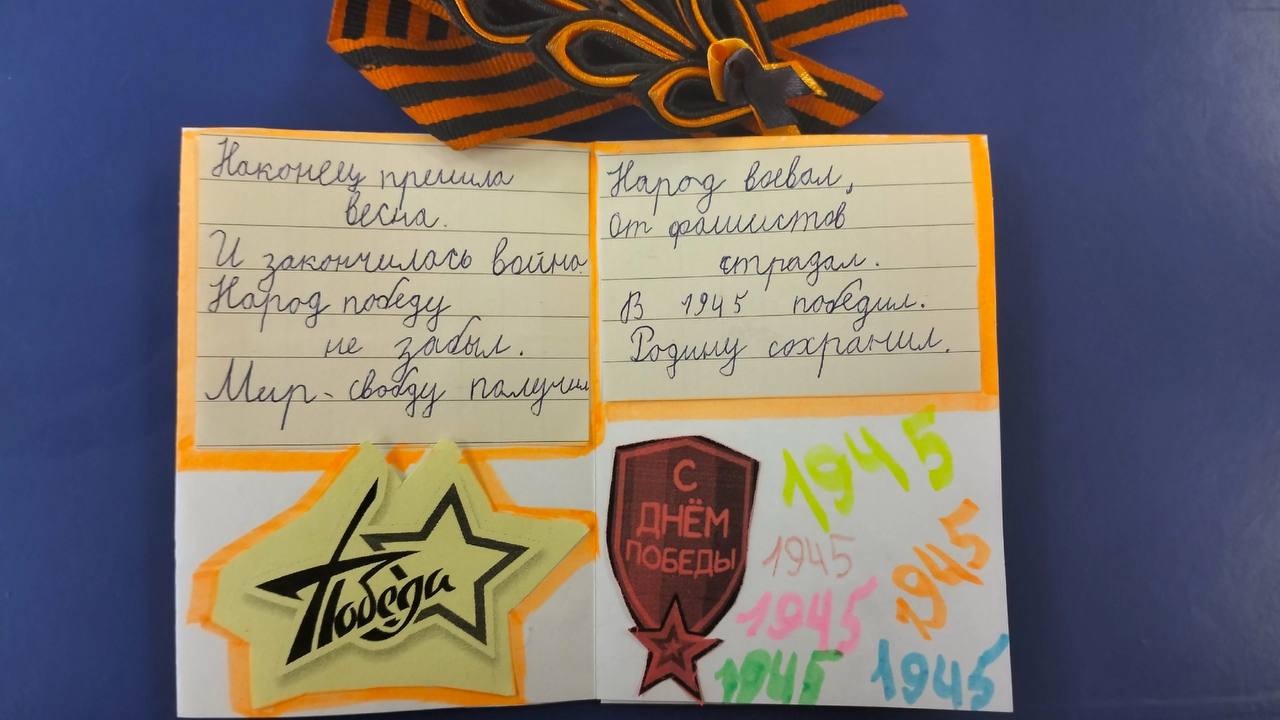 Наконец пришла
весна.
И закончилась война
Народ победу
не забыл.
Мир - свободу палучил
Победа
Народ воевал,
От фашистов
страдал.
В 1945 победил.
Родину сохранил.
С
ДНЁМ
ПОБЕДЫ
1945
1945
1945
1945
1945
1945